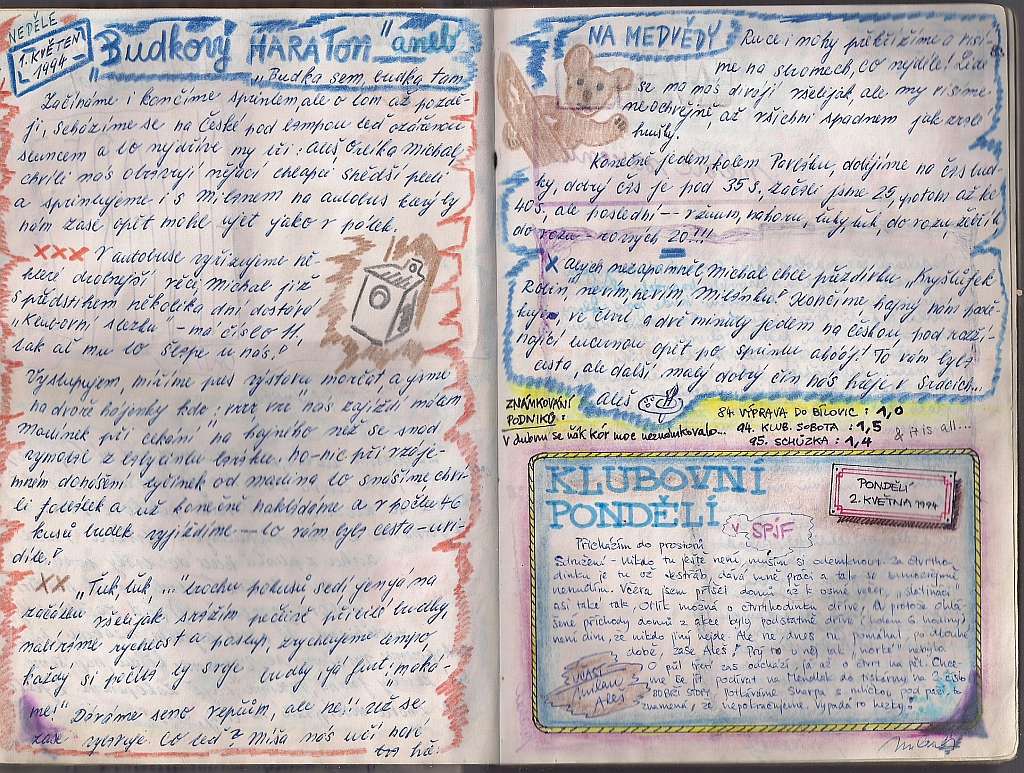 NEDĚLE
1. KVĚTEN
1994
"Budkový MARATON" aneb
"Budka sem, budka tam
Začínáme i končíme sprintem ale o tom až pozdě-
ji, scházíme se na České pod lampou teď ozářenou
sluncem a to nejdříve my tři: Aleš Michal,
chvíli nás otravují nějací chlapci
a sprintujeme i s Milanem na autobus který by
nám zase opět mohl ujet jako v pátek.
xxx V autobuse vyřizujeme ně-
které drobnější věci, Michal již
s předstihem několika dní dostává
"Klubovní stezku" - má číslo 11,
tak ať mu to šlape u nás!
Vystupujem, míříme přes výstavu morčat a jsme
na dvoře hájenky kde; vrr vrr nás zajíždí málem
Mařínek při čekání na hajného než se snad
vymotá z
mném to snášíme chví-
li a už konečně nakládáme a v počtu 46
kusů budek vyjíždíme - to vám byla cesta - uvi-
díte!
xx "Ťuk, ťuk ..." trochu pokusů sedí na
začátku všelijak srážím pečlivě budky,
nabíráme rychlost a postup, zrychlujeme tempo,
každý si počítá ty svoje budky
me!" Dáváme seno ale než se
zase Co teď? Míša nás učí nové
hře:
NA MEDVĚDY Ruce i nohy překřížíme a visí-
me na stromech, co nejdéle! Lidé
se na nás dívají všelijak, ale my visíme
neochvějně, až všichni spadnem jak zralé
hrušky.
Konečně jedem, kolem Ponávku, dobíjíme na čas bud-
ky, dobrý čas je pod 35 s, začali jsme 25, potom až ke
40 s, ale poslední -- vžuum, nahoru, ťuky, ťuk, do vozu,
do vozu rovných 20!!!
x Abych nezapomněl, Michal chce přezdívku "Kryštůfek
Robin", nevím, nevím, Miláňku! Končíme hajný nám podě-
kuje, ve čtvrt a dvě minuty jedem na Českou, pod nezá-
řící lucernou opět po sprintu ahóój! To vám byla
cesta, ale další malý dobrý čin nás hřeje v srdcích...
Aleš
ZNÁMKOVÁNÍ
PODNIKŮ:
V dubnu se ňák kór moc neznámkovalo...
84. VÝPRAVA DO BÍLOVIC : 1,0
94. KLUB. SOBOTA : 1,5
95. SCHŮZKA : 1,4
& it is all...
KLUBOVNÍ
PONDĚLÍ
V SPÍF
PONDĚLÍ
2. KVĚTNA 1994
Přicházím do prostorů
Sdružení - nikdo tu ještě není, musím si odemknout. Za čtvrtho-
dinku je tu už Jestřáb, dává mně práci a tak se samozřejmě
nenudím. Včera jsem přišel domů až k osmé večer, "slatináči"
asi také tak, Ořík možná o čtvrthodinku dříve. A protože ohlá-
šené příchody domů z akce byly podstatně dříve (kolem 6 hodiny)
není divu, že nikdo jiný nejde. Ale ne, dnes mi pomáhal, po dlouhé
době, zase Aleš! Prý to u něj tak "horké" nebylo.
O půl třetí zas odchází, já až o čtvrt na pět. Chce-
me se jít podívat na Mendlák do tiskárny na 2. číslo
BOBŘÍ STOPY, potkáváme Sharpa s ruličkou pod paží, to
znamená, že nepokračujeme. Vypadá to hezky.
ÚČAST
Milan
Aleš